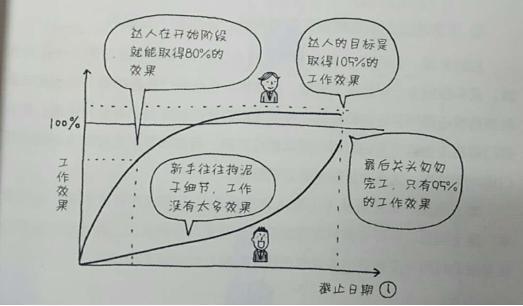 达人在开始阶段
就能取得80%的
效果
达人的目标是
取得105%的
工作效果
100%
工作效果
新手往往拘泥
于细节，工作
没有太多效果
最后关头匆匆
完工，只有95%
的工作效果
截止日期